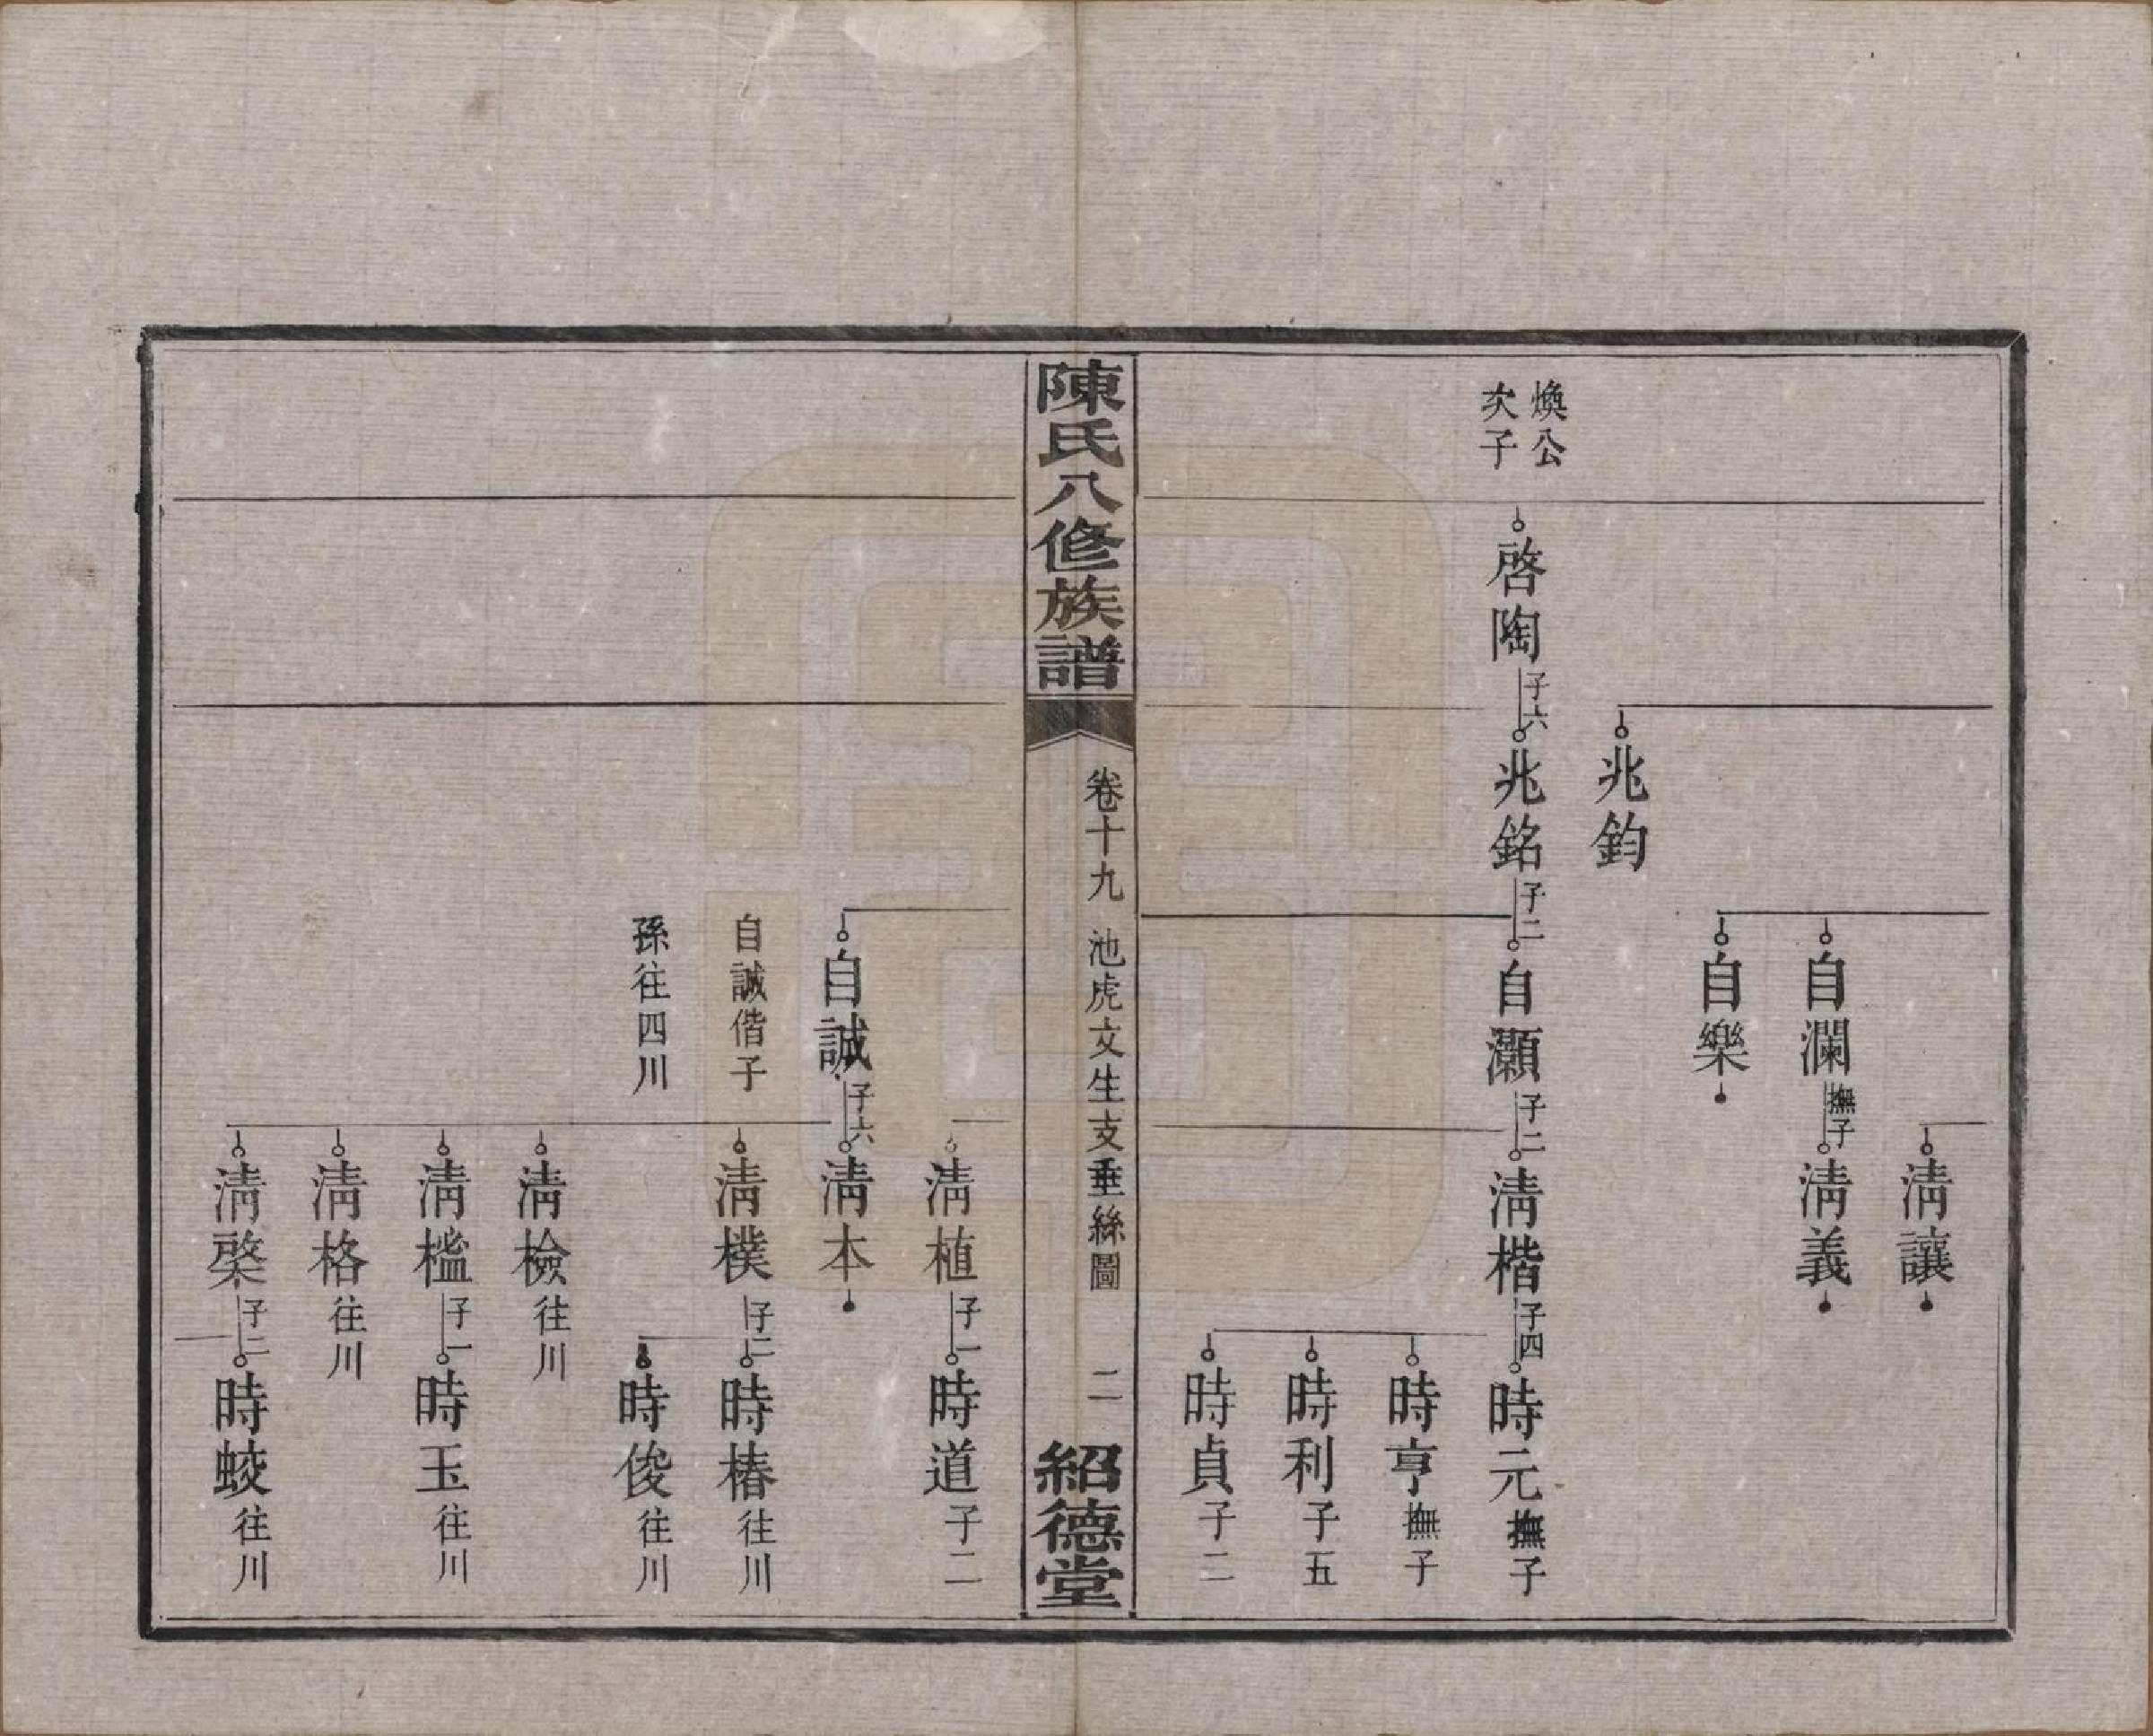 清讓
自瀾 撫子 清義
自樂
兆鈞
煥公
次子
啓陶 子六 兆銘 子二 自灝 子二 清楷 子四 時元 撫子
時亨 撫子
時利 子五
時貞 子二
陳氏八修族譜 卷十九 池虎文生支垂絲圖 二 紹德堂
清植 子一 時道 子二
自誠 子六 清本
自誠偕子
清樸 子二 時椿 往川
孫往四川
時俊 往川
清檢 往川
清㯺 子一 時玉 往川
清格 往川
清棨 子二 時蛟 往川